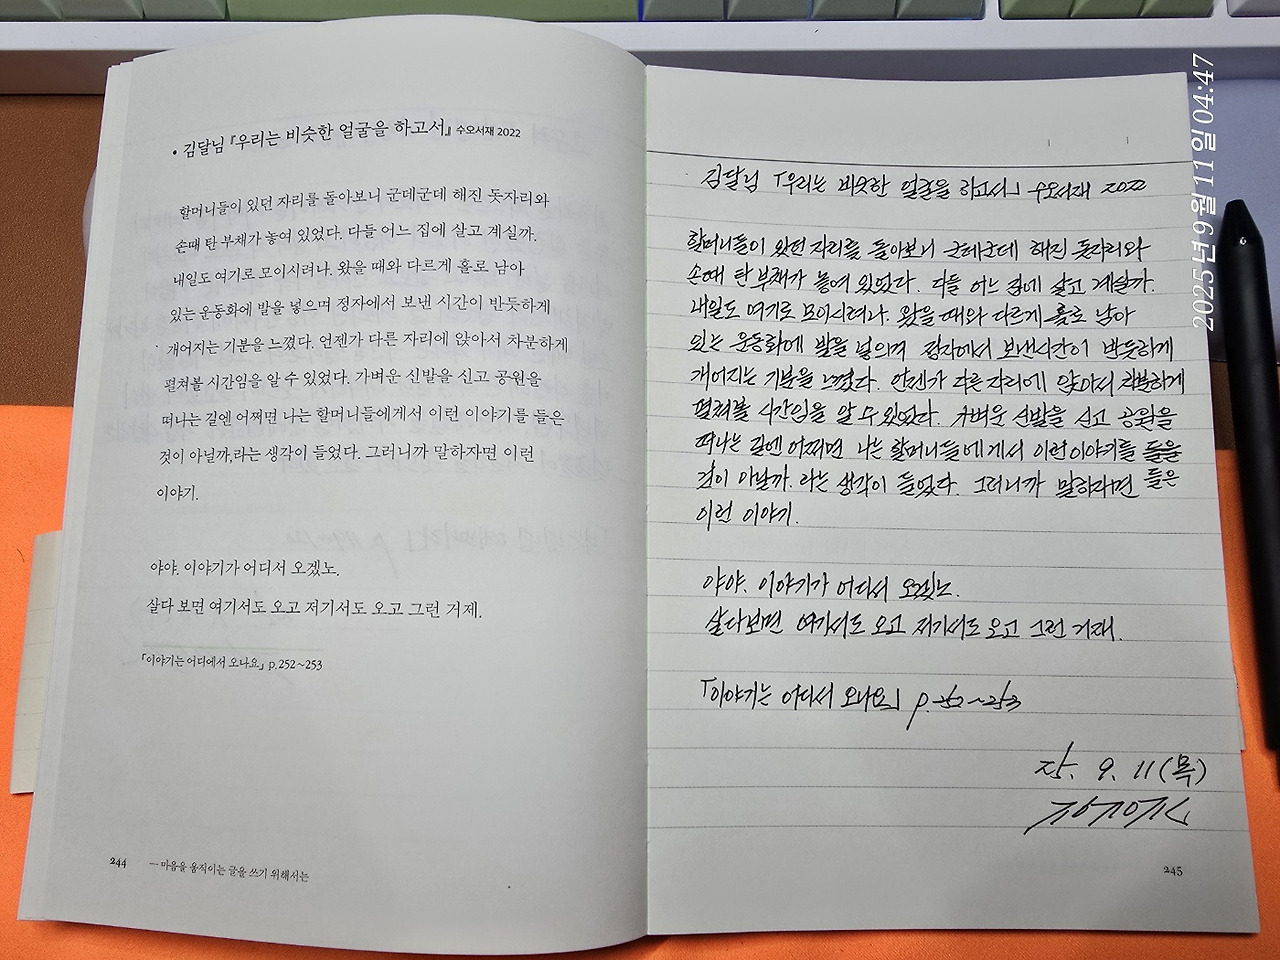 • 김달님 『우리는 비슷한 얼굴을 하고서』 수오서재 2022
할머니들이 있던 자리를 돌아보니 군데군데 해진 돗자리와
손때 탄 부채가 놓여 있었다. 다들 어느 집에 살고 계실까.
내일도 여기로 모이시려나. 왔을 때와 다르게 홀로 남아
있는 운동화에 발을 넣으며 정자에서 보낸 시간이 반듯하게
개어지는 기분을 느꼈다. 언젠가 다른 자리에 앉아서 차분하게
펼쳐볼 시간임을 알 수 있었다. 가벼운 신발을 신고 공원을
떠나는 길엔 어쩌면 나는 할머니들에게서 이런 이야기를 들은
것이 아닐까,라는 생각이 들었다. 그러니까 말하자면 이런
이야기.
야야. 이야기가 어디서 오겠노.
살다 보면 여기서도 오고 저기서도 오고 그런 거제.
「이야기는 어디에서 오나요」 p.252~253
244 — 마음을 움직이는 글을 쓰기 위해서는
김달님 「우리는 비슷한 얼굴을 하고서」 수오서재 2022
할머니들이 있던 자리를 돌아보니 군데군데 해진 돗자리와
손때 탄 부채가 놓여 있었다. 다들 어느 집에 살고 계실까.
내일도 여기로 모이시려나. 왔을 때와 다르게 홀로 남아
있는 운동화에 발을 넣으며 정자에서 보낸시간이 반듯하게
개어지는 기분을 느꼈다. 언젠가 다른 자리에 앉아서 차분하게
펼쳐볼 시간임을 알 수 있었다. 가벼운 신발을 신고 공원을
떠나는 길엔 어쩌면 나는 할머니들에게서 이런 이야기를 들을
것이 아닐까. 라는 생각이 들었다. 그러니까 말하자면 들은
이런 이야기.
야야. 이야기가 어디서 오겠노.
살다보면 여기서도 오고 저기서도 오고 그런 거제.
「이야기는 어디서 오나요」 p.252~253
25. 9. 11 (목)
245
2025년 9월 11일 04:47